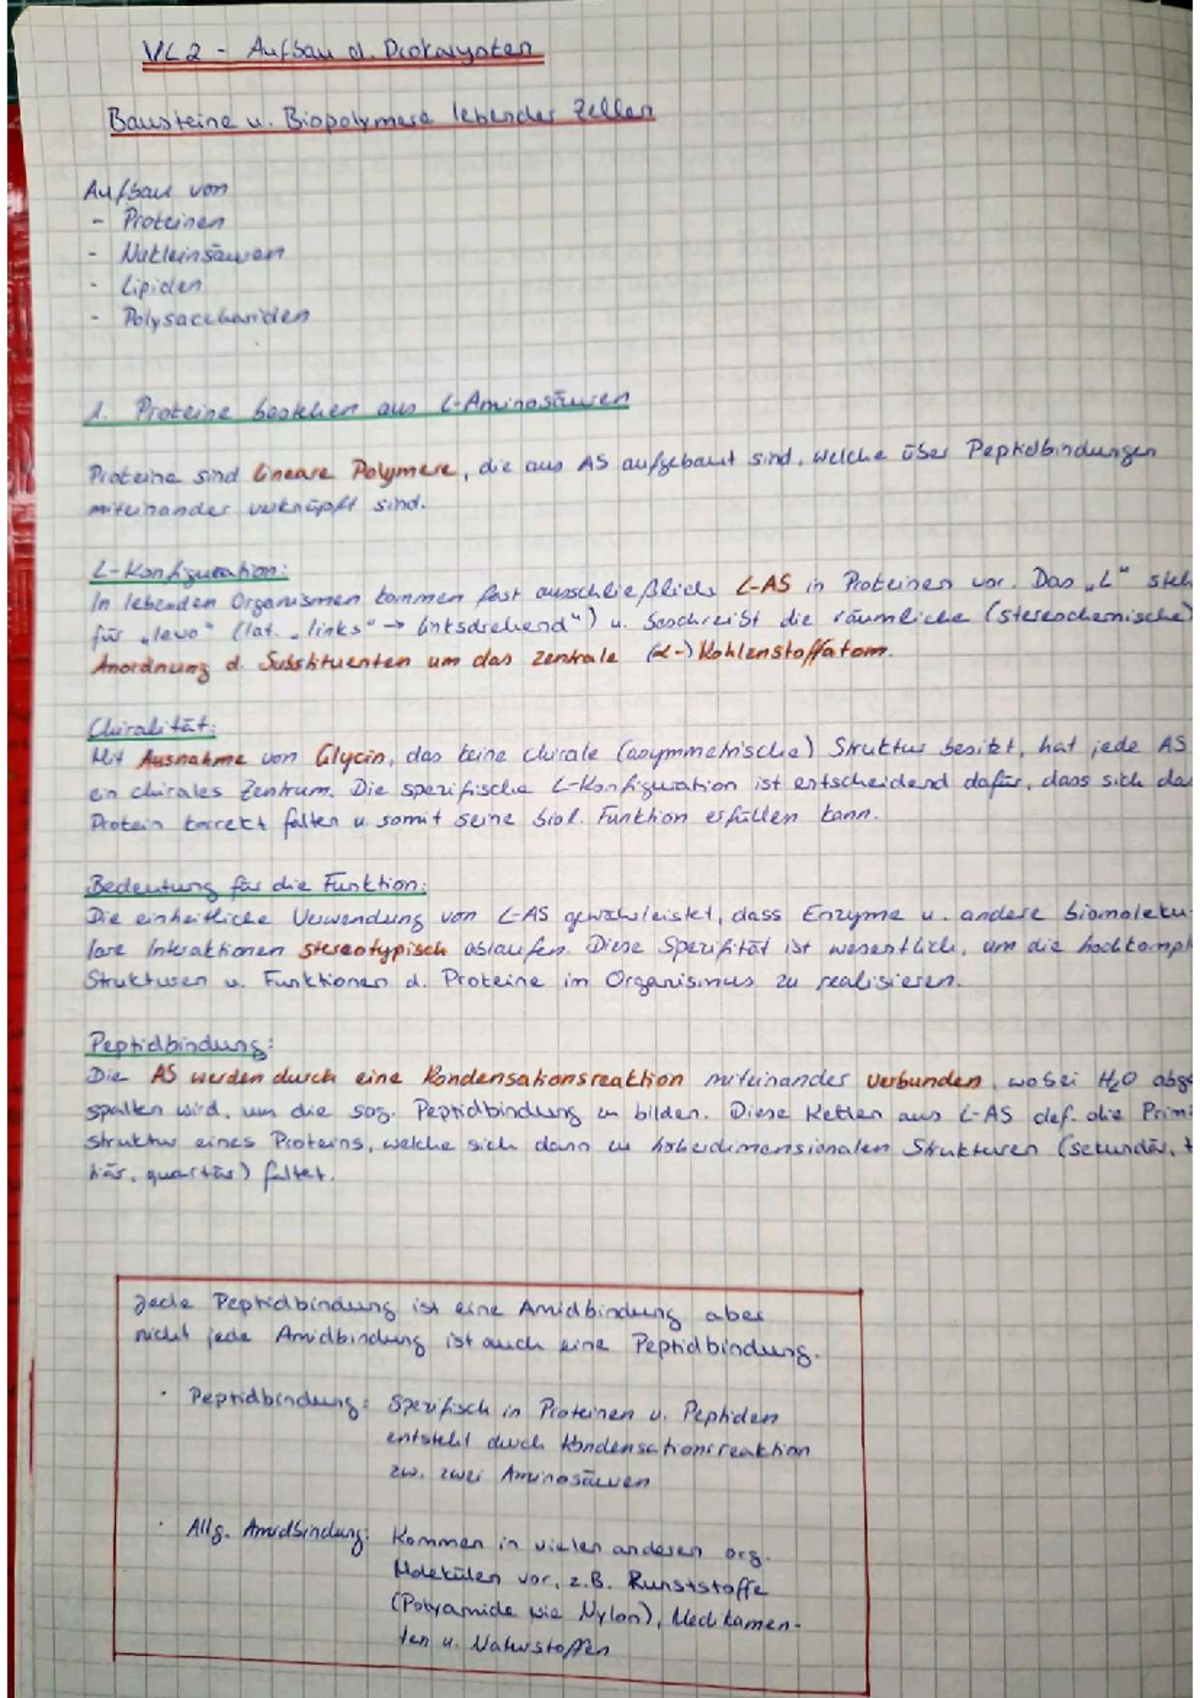 VL2 - Aufbau d. Prokaryoten
Bausteine u. Biopolymere lebender Zellen
Aufbau von
- Proteinen
- Nukleinsäuren
- Lipiden
- Polysacchariden
1. Proteine bestehen aus L-Aminosäuren
Proteine sind lineare Polymere, die aus AS aufgebaut sind, welche über Peptidbindungen
miteinander verknüpft sind.
L-Konfiguration:
In lebenden Organismen kommen fast ausschließlich L-AS in Proteinen vor. Das „L" steh
für „levo" (lat. „links" → linksdrehend") u. beschreibt die räumliche (stereochemische)
Anordnung d. Substituenten um das zentrale (α-) Kohlenstoffatom.
Chiralität:
Mit Ausnahme von Glycin, das keine chirale (asymmetrische) Struktur besitzt, hat jede AS
ein chirales Zentrum. Die spezifische L-Konfiguration ist entscheidend dafür, dass sich da
Protein korrekt falten u. somit seine biol. Funktion erfüllen kann.
Bedeutung für die Funktion:
Die einheitliche Verwendung von L-AS gewährleistet, dass Enzyme u. andere biomoleku-
lare Interaktionen stereotypisch ablaufen. Diese Spezifität ist wesentlich, um die hochkompl
Strukturen u. Funktionen d. Proteine im Organismus zu realisieren.
Peptidbindung:
Die AS werden durch eine Kondensationsreaktion miteinander verbunden, wobei H₂O abge
spalten wird, um die sog. Peptidbindung zu bilden. Diese Ketten aus L-AS def. die Prim
struktur eines Proteins, welche sich dann zu höherdimensionalen Strukturen (sekundär, t
tiär, quartär) faltet.
Jede Peptidbindung ist eine Amidbindung aber
nicht jede Amidbindung ist auch eine Peptidbindung.
· Peptidbindung: Spezifisch in Proteinen u. Peptiden
entsteht durch Kondensationsreaktion
zw. zwei Aminosäuren
· Allg. Amidbindung: Kommen in vielen anderen org.
Molekülen vor, z.B. Kunststoffe
(Polyamide wie Nylon), Medikamen-
ten u. Naturstoffen